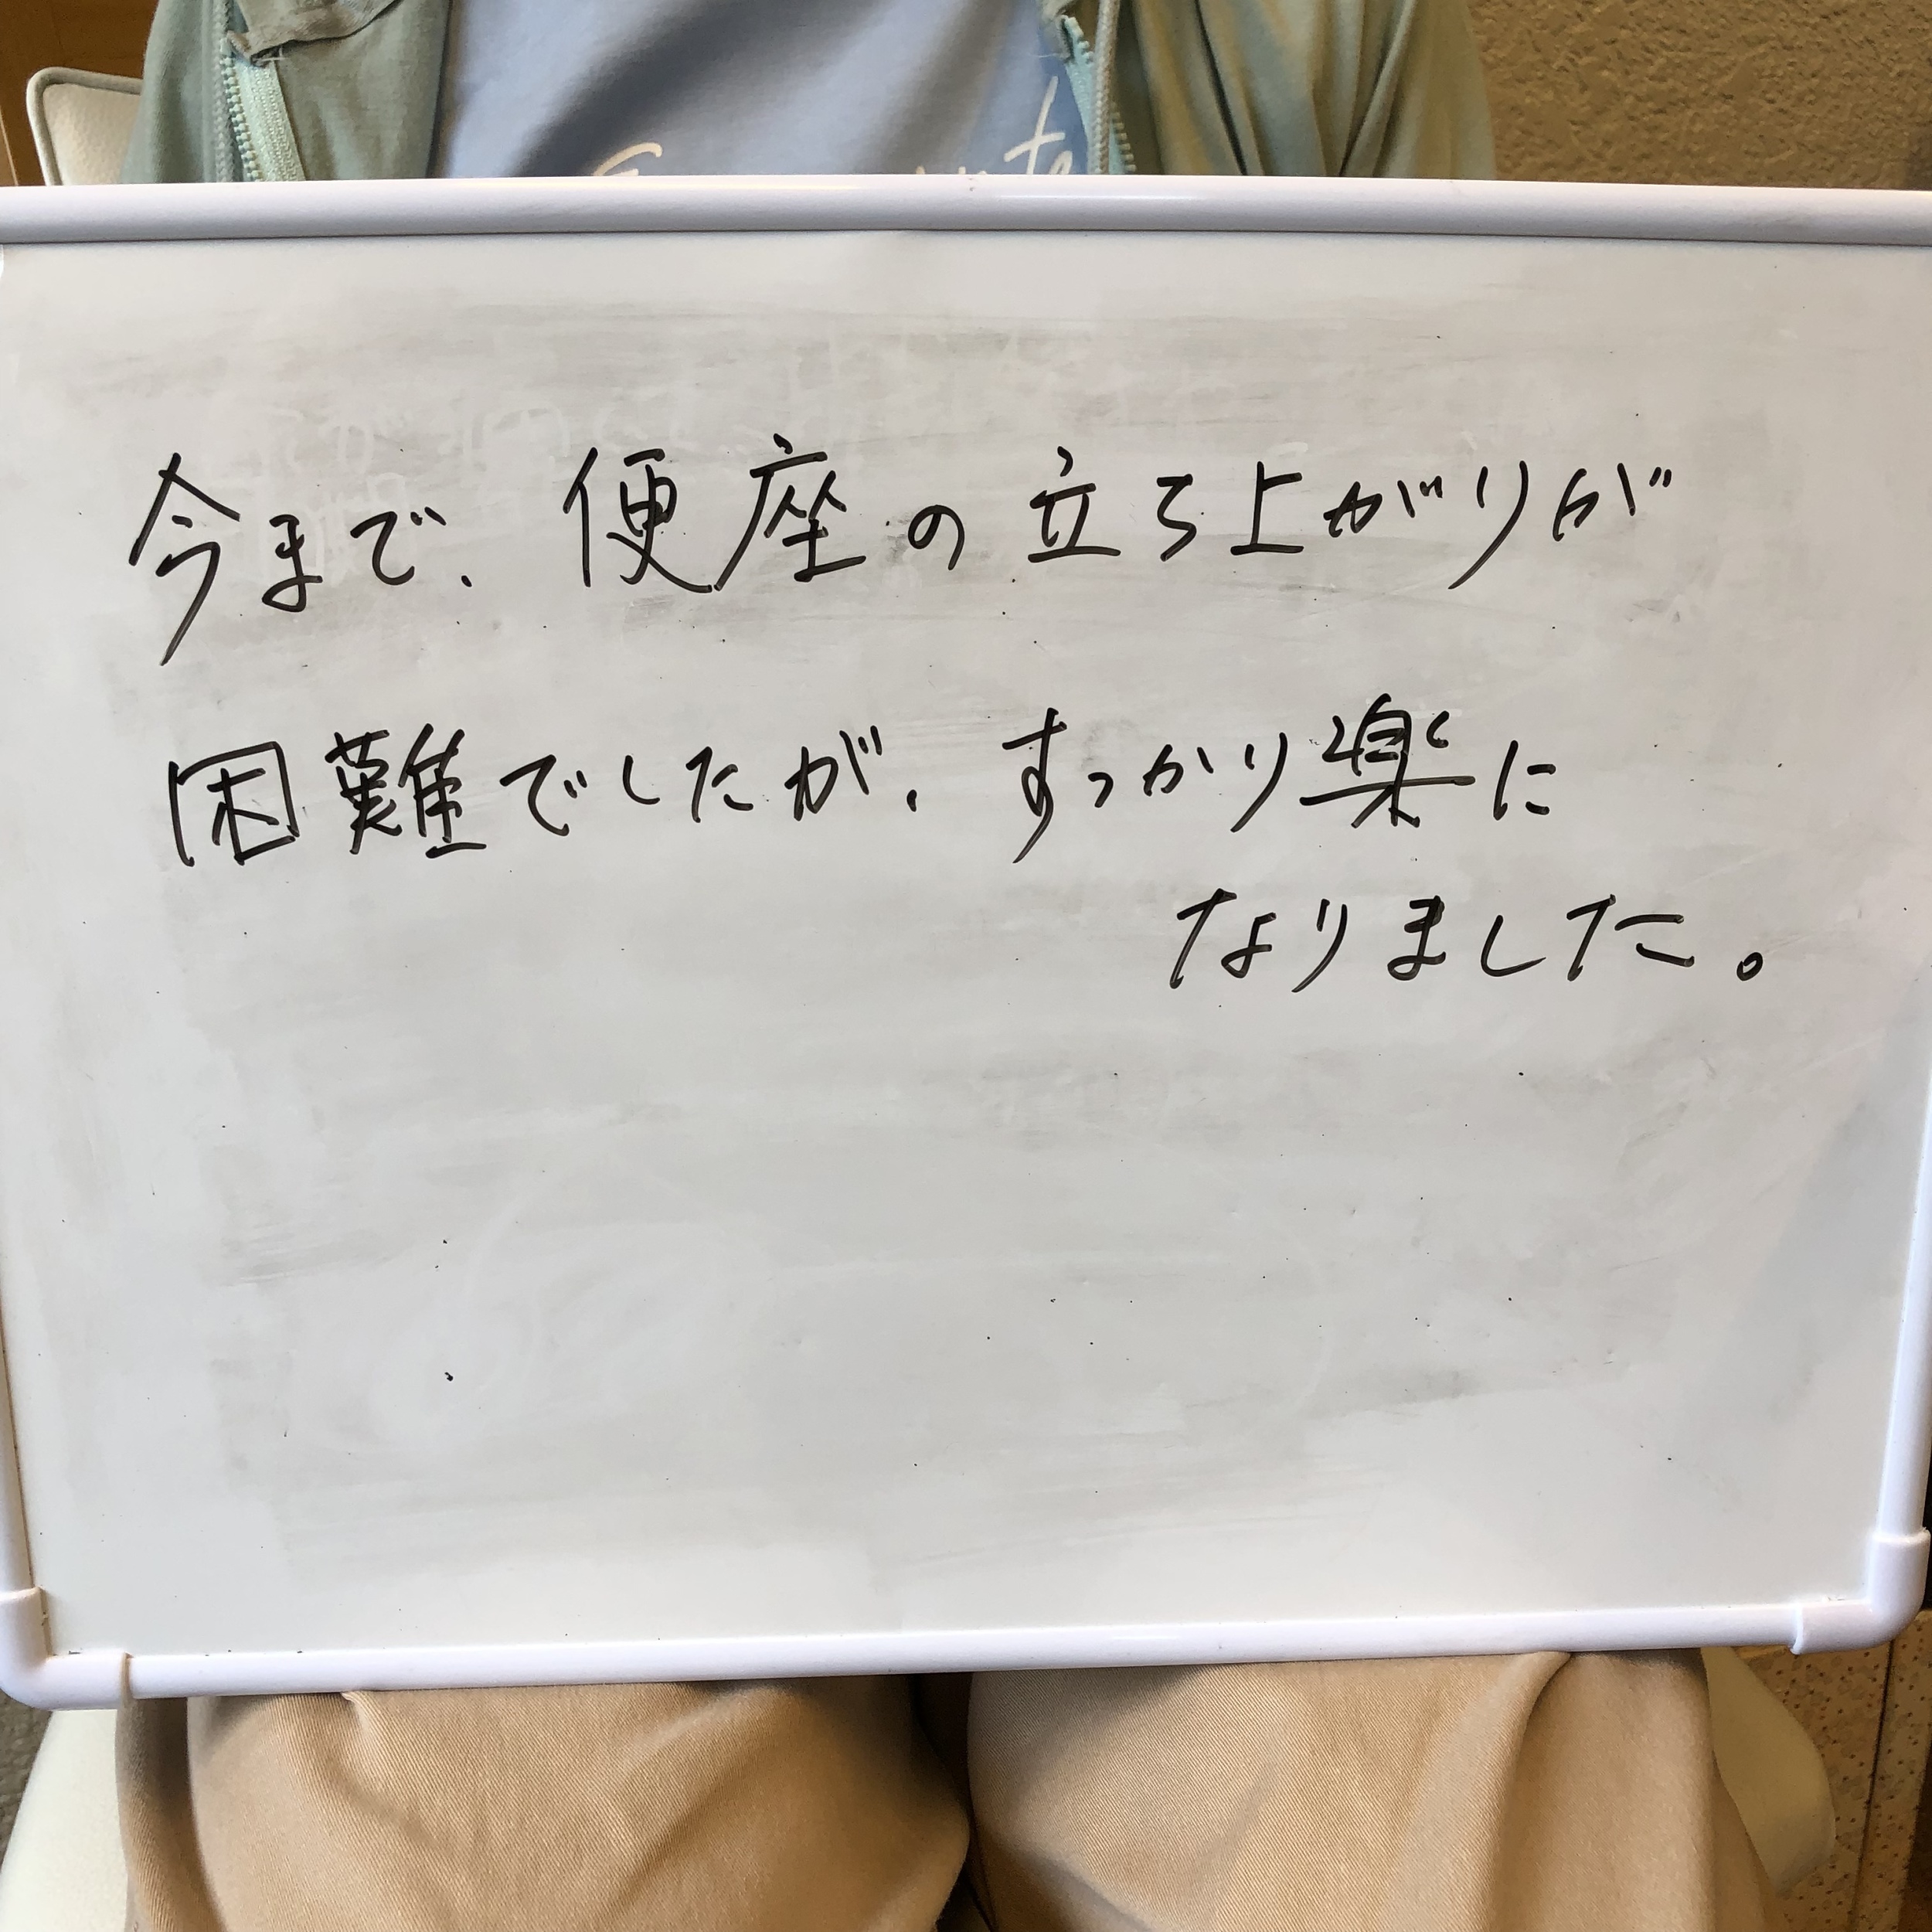 今まで、便座の立ち上がりが
困難でしたが、すっかり楽に
なりました。